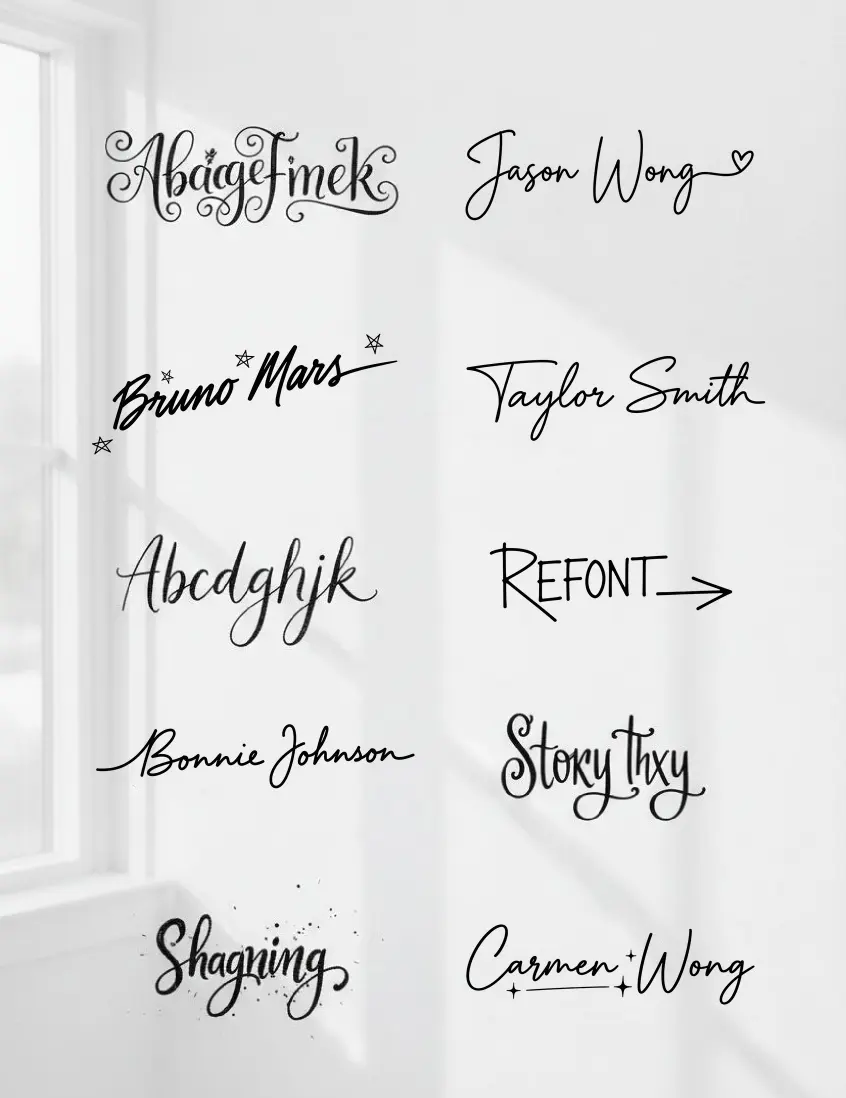 AbcicgeFimek
Jason Wong
Bruno Mars
Taylor Smith
Abcdghjk
REFONT
Bonnie Johnson
Story Thxy
Shagning
Carmen Wong